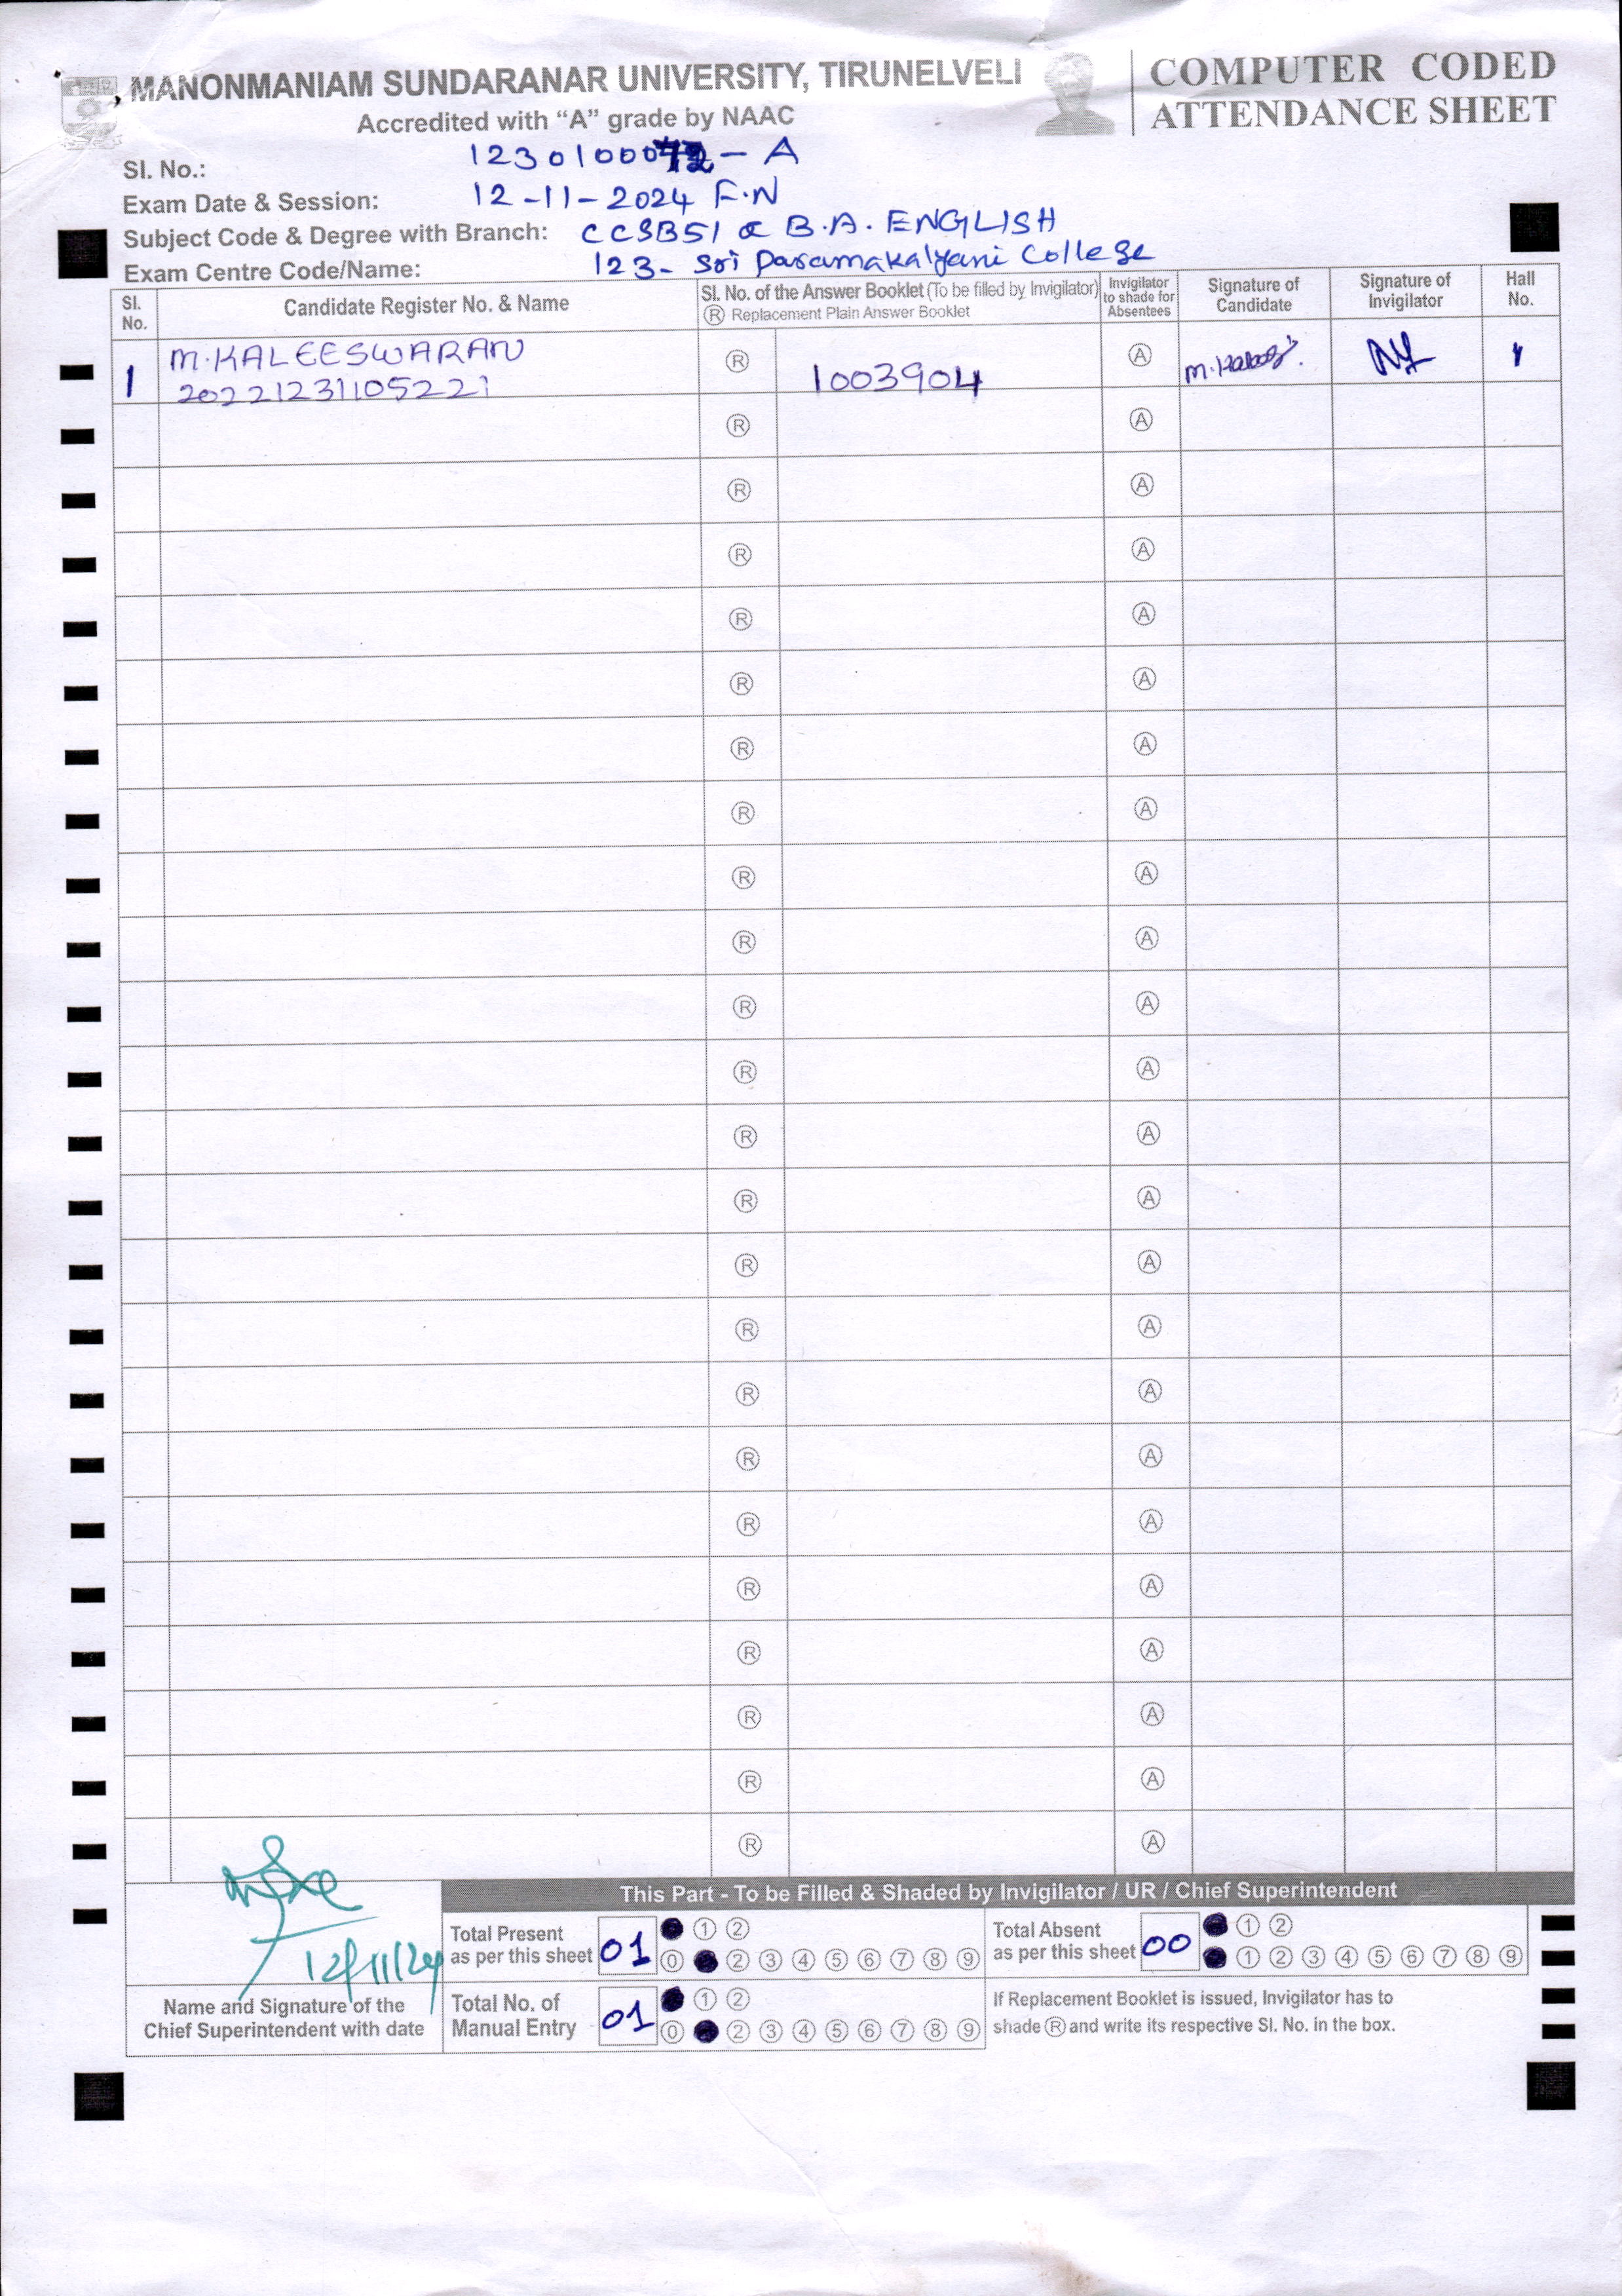 MANONMANIAM SUNDARANAR UNIVERSITY, TIRUNELVELI
Accredited with “A” grade by NAAC
COMPUTER CODED
ATTENDANCE SHEET
Sl. No.: 1230100072 - A
Exam Date & Session: 12-11-2024 F.N
Subject Code & Degree with Branch: CCSB51 & B.A. ENGLISH
Exam Centre Code/Name: 123- Sri Paramakalyani College
Sl. No.
Candidate Register No. & Name
Sl. No. of the Answer Booklet (To be filled by Invigilator)
Ⓡ Replacement Plain Answer Booklet
Invigilator to shade for Absentees
Signature of Candidate
Signature of Invigilator
Hall No.
1 M.KALEESWARAN Ⓡ 10033904 Ⓐ 1
20221231105221
Ⓡ Ⓐ
Ⓡ Ⓐ
Ⓡ Ⓐ
Ⓡ Ⓐ
Ⓡ Ⓐ
Ⓡ Ⓐ
Ⓡ Ⓐ
Ⓡ Ⓐ
Ⓡ Ⓐ
Ⓡ Ⓐ
Ⓡ Ⓐ
Ⓡ Ⓐ
Ⓡ Ⓐ
Ⓡ Ⓐ
Ⓡ Ⓐ
Ⓡ Ⓐ
Ⓡ Ⓐ
Ⓡ Ⓐ
Ⓡ Ⓐ
Ⓡ Ⓐ
Ⓡ Ⓐ
Ⓡ Ⓐ
Ⓡ Ⓐ
12/11/24
Name and Signature of the
Chief Superintendent with date
This Part - To be Filled & Shaded by Invigilator / UR / Chief Superintendent
Total Present
as per this sheet 01
① ②
⓪ ② ③ ④ ⑤ ⑥ ⑦ ⑧ ⑨
Total Absent
as per this sheet 00
① ②
① ② ③ ④ ⑤ ⑥ ⑦ ⑧ ⑨
Total No. of
Manual Entry 01
① ②
⓪ ② ③ ④ ⑤ ⑥ ⑦ ⑧ ⑨
If Replacement Booklet is issued, Invigilator has to
shade Ⓡ and write its respective Sl. No. in the box.